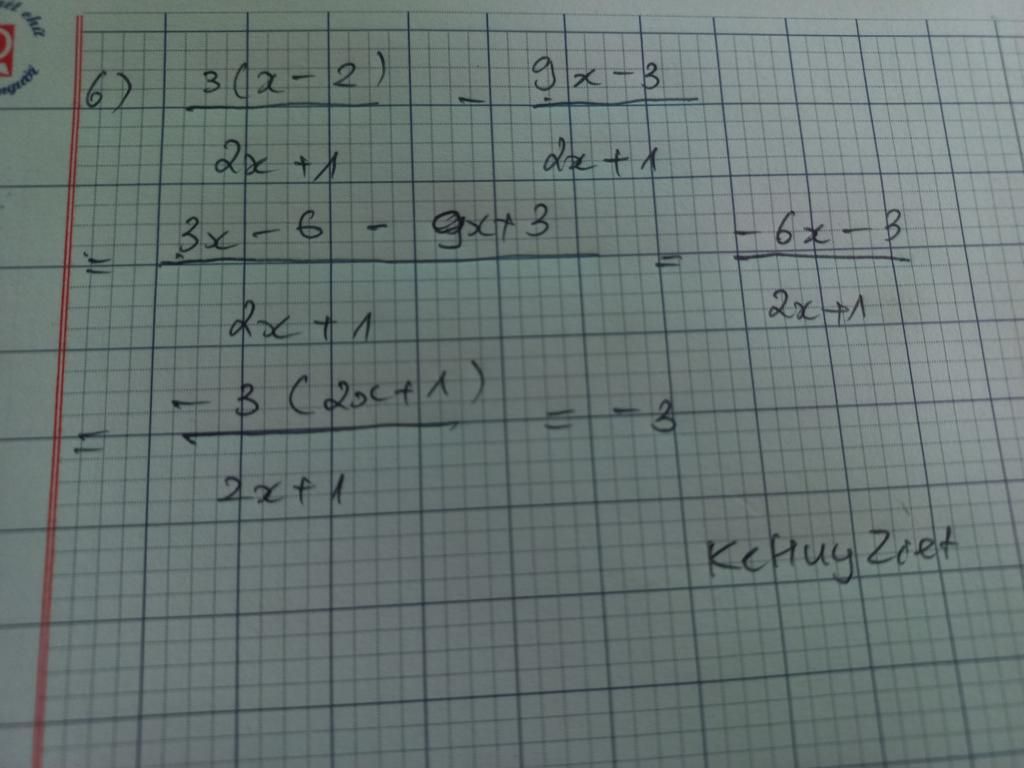 6) 3(x - 2) / 2x + 1 - 9x - 3 / 2x + 1
= 3x - 6 - 9x + 3 / 2x + 1 = -6x - 3 / 2x + 1
= -3(2x + 1) / 2x + 1 = -3